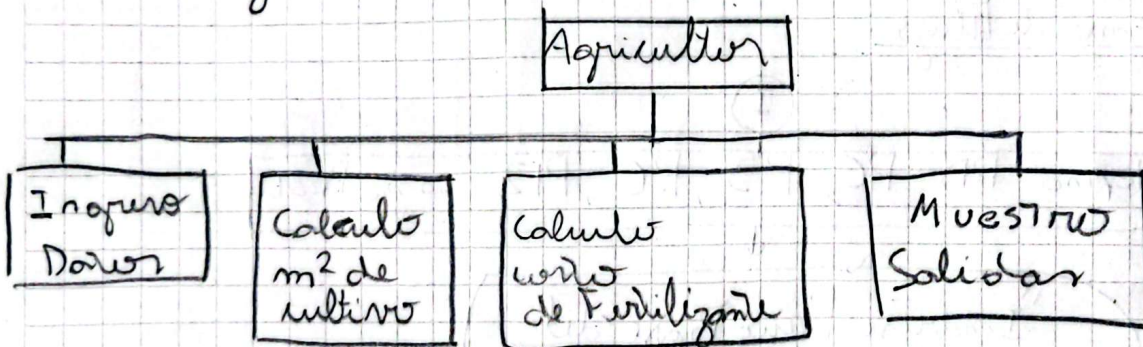 Agricultor
Ingreso
Datos
Calculo
m² de
cultivo
calculo
costo
de Fertilizante
MUESTRO
Salidas